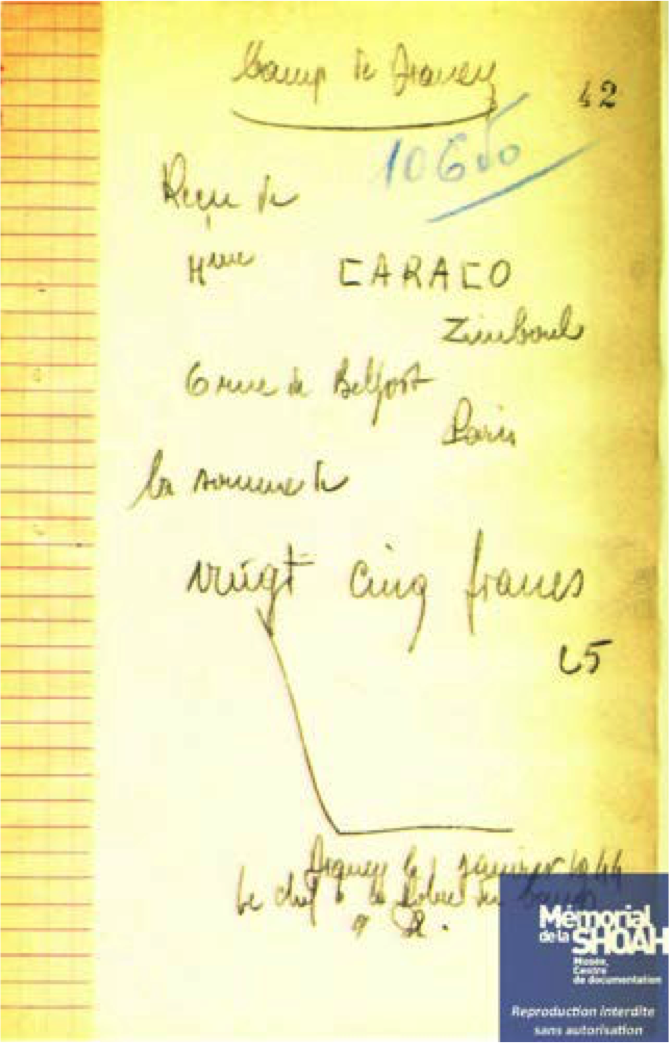 Camp de Drancy
42
10650
Reçu de
Mme CARACO
Zimboul
6 rue de Belfort
Paris
la somme de
vingt cinq francs
25
Drancy le janvier 1944
Le chef de la Police du camp
Mémorial
de la SHOAH
Musée,
Centre
de documentation
Reproduction interdite
sans autorisation